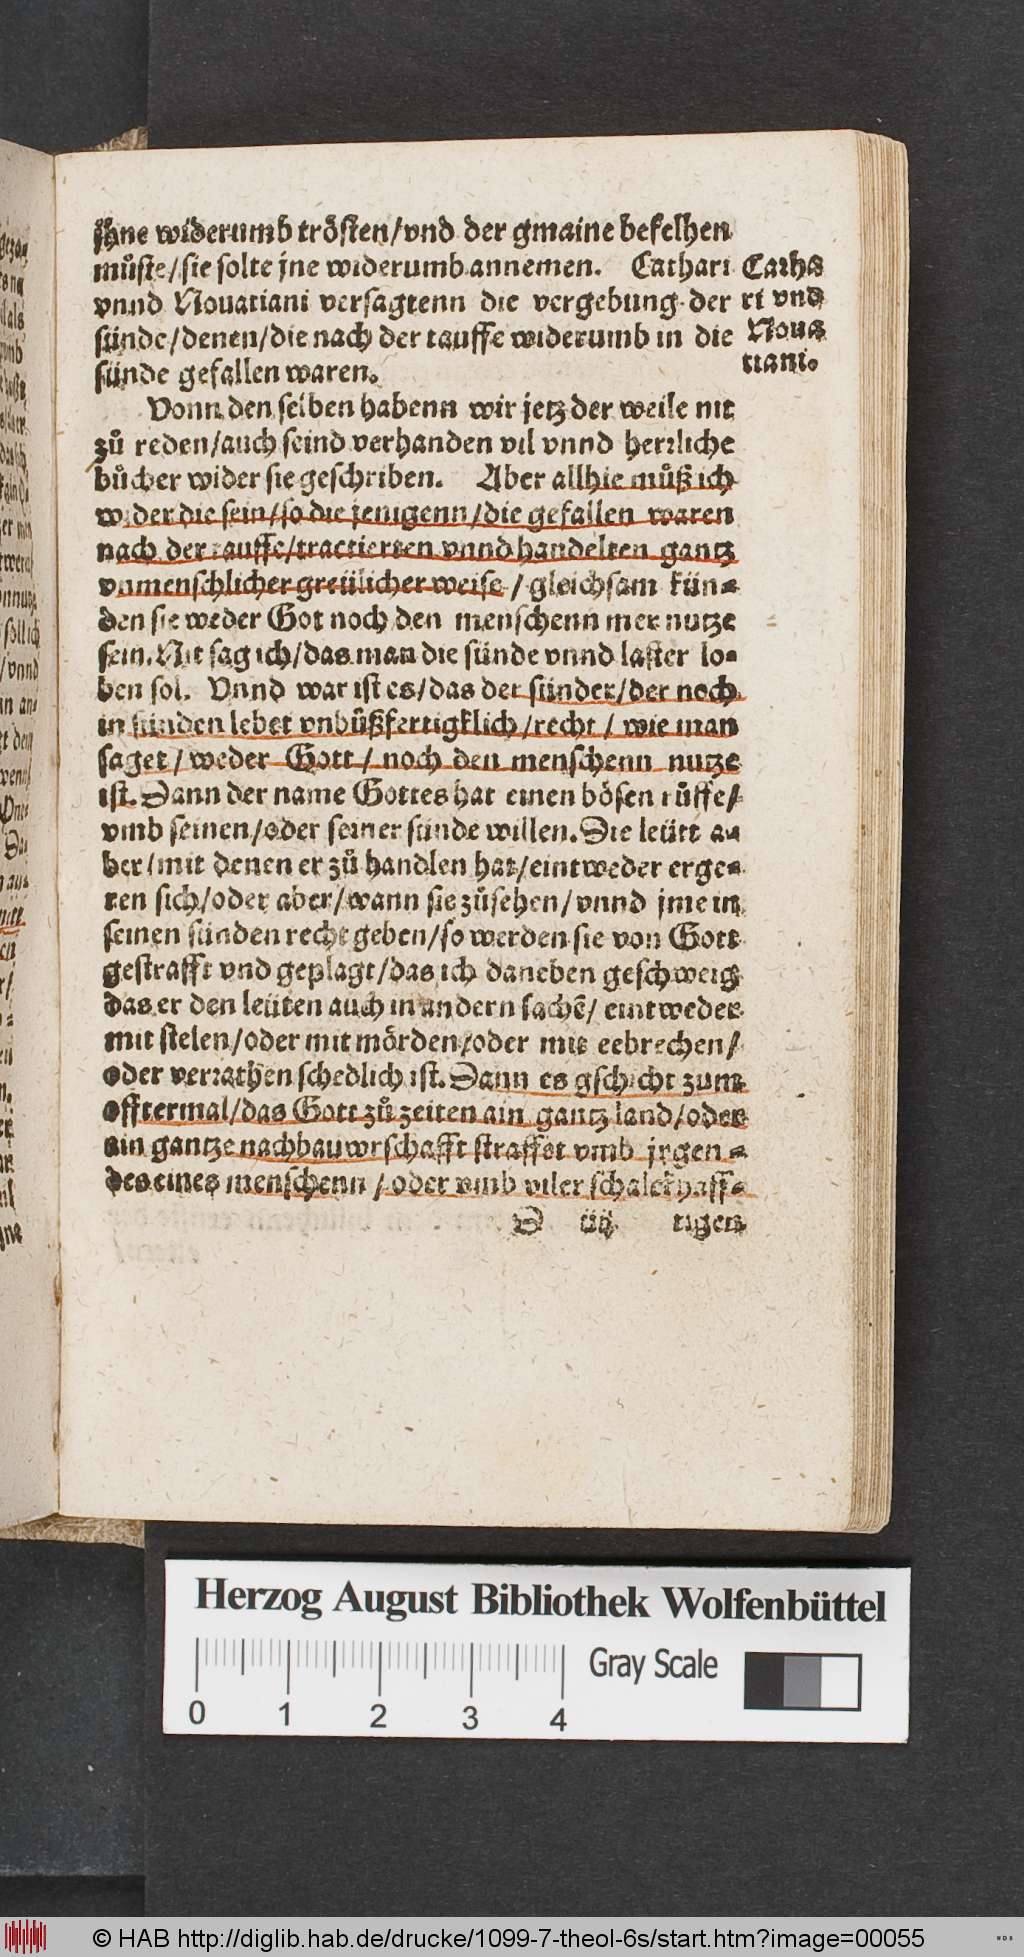 jhne widerumb trösten/vnd der gmaine befelhen
můste/sie solte jne widerumb annemen. Cathari
vnnd Nouatiani versagtenn die vergebung der
sünde/denen/die nach der tauffe widerumb in die
sünde gefallen waren.
Catha
ri vnd
Noua
tiani.
Vonn den selben habenn wir jetz der weile nit
zů reden/auch seind verhanden vil vnnd herrliche
bůcher wider sie geschriben. Aber allhie můß ich
wider die sein/so die jenigenn/die gefallen waren
nach der tauffe/tractierten vnnd handelten gantz
vnmenschlicher greülicher weise/gleichsam kün=
den sie weder Got noch den menschenn mer nutze
sein. Nit sag ich/das man die sünde vnnd laster lo=
ben sol. Vnnd war ist es/das der sünder/der noch
in sünden lebet vnbüßfertigklich/recht/wie man
saget/weder Gott/noch den menschenn nutze
ist. Dann der name Gottes hat einen bösen růffe/
vmb seinen/oder seiner sünde willen. Die leütt a=
ber/mit denen er zů handlen hat/eintweder erge=
ren sich/oder aber/wann sie zůsehen/vnnd jme in
seinen sünden recht geben/so werden sie von Gott
gestrafft vnd geplagt/das ich daneben geschweig
das er den leüten auch in andern sachē/eintweder
mit stelen/oder mit mörden/oder mit eebrechen/
oder verrathen schedlich ist. Dann es gschicht zum
offtermal/das Gott zů zeiten ain gantz land/oder
ain gantze nachbauwrschafft straffet vmb jrgen=
des eines menschenn/oder vmb viler schalckhaff=
D iij tigen
Herzog August Bibliothek Wolfenbüttel
Gray Scale
0 1 2 3 4
© HAB http://diglib.hab.de/drucke/1099-7-theol-6s/start.htm?image=00055